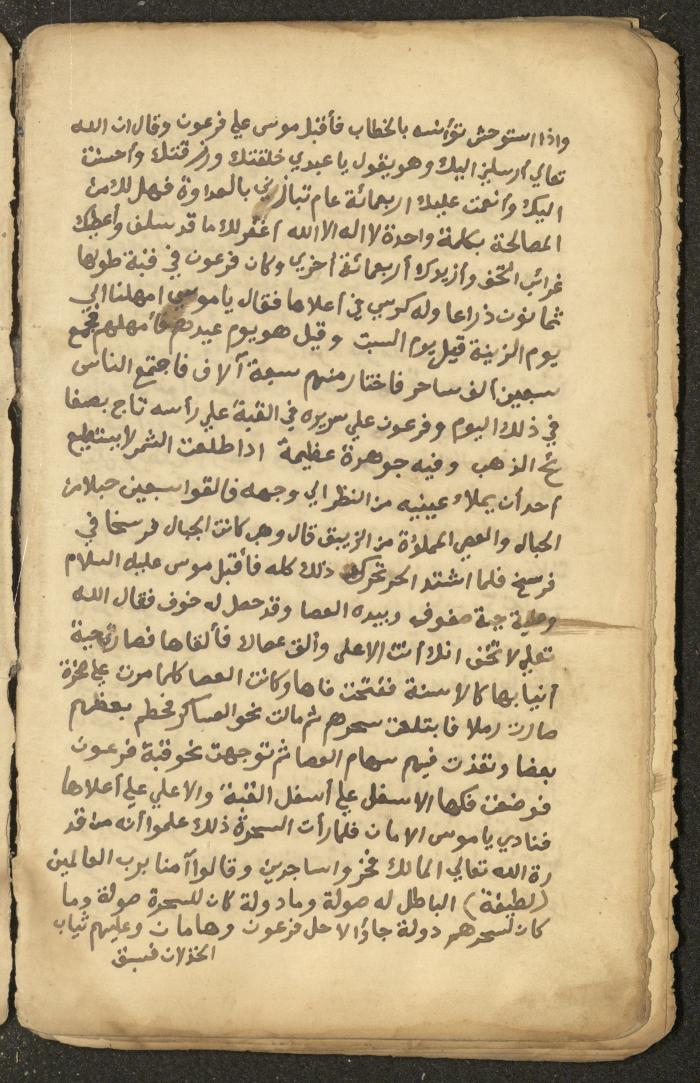 واذا استوحش تؤأنسه بالخطاب فأقبل موسى علي فرعون وقال ان الله
تعالي أرسلني اليك وهو يقول يا عبدي خلقتك ورزقتك وأحسنت
اليك وأنعمت عليك اربعمائة عام تبارزني بالعداوة فهل لك من
المصالحة بكلمة واحدة لا اله الا الله أغفر لك ما قد سلف وأعطيك
غرائب التحف وأزيدك أربعمائة أخري وكان فرعون في قبة طولها
ثمانون ذراعا وله كرسي في أعلاها فقال يا موسي امهلنا الي
يوم الزينة قيل يوم السبت وقيل هو يوم عيدهم فأمهلهم فجمع
سبعين ألف ساحر فاختار منهم سبعة آلاف فاجتمع الناس
في ذلك اليوم وفرعون علي سريره في القبة علي رأسه تاج بصفا
ئح الذهب وفيه جوهرة عظيمة اذا طلعت الشمس لا يستطيع
أحد أن يملاء عينيه من النظر الي وجهه فالقوا سبعين حبلا من
الحبال والعصي المملؤة من الزيبق قال وهي كانت الحبال فرسخا في
فرسخ فلما اشتد الحر تحرك ذلك كله فأقبل موسى عليه السلام
وعليه جبة صفوف وبيده العصا وقد حصل له خوف فقال الله
تعلي لا تخف انك أنت الاعلى وألق عصاك فألقاها فصارت حية
أنيابها كالاسنة ففتحت فاها وكانت العصا كلما مرت علي صخرة
صارت رملا فابتلعت سحرهم ثم مالت نحو العساكر فحطم بعضهم
بعضا ونفذت فيهم سهام العصا ثم توجهت نحو قبة فرعون
فوضعت فكها الاسفل علي أسفل القبة والاعلي علي أعلاها
فنادي يا موسى الامان فلما رأت السحرة ذلك علموا أنه من قد
رة الله تعالي المالك فخروا ساجدين وقالوا آمنا برب العالمين
(لطيفة) الباطل له صولة وما دولة كان للسحرة صولة وما
كان لسحرهم دولة جاؤا لاجل فرعون وهامان وعليهم ثياب
الخذلان فسبق